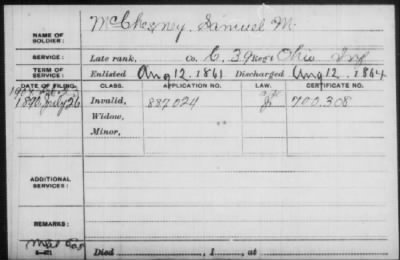 McChesney, Samuel M.
NAME OF SOLDIER:
SERVICE: Late rank, Co. C. 39 Reg't Ohio Inf
TERM OF SERVICE: Enlisted Aug 12. 1861 Discharged Aug 12. 1864
DATE OF FILING. CLASS. APPLICATION NO. LAW. CERTIFICATE NO.
1890 July 26 Invalid, 887024 700.308
Widow,
Minor,
ADDITIONAL SERVICES:
REMARKS:
Died , 1 , at